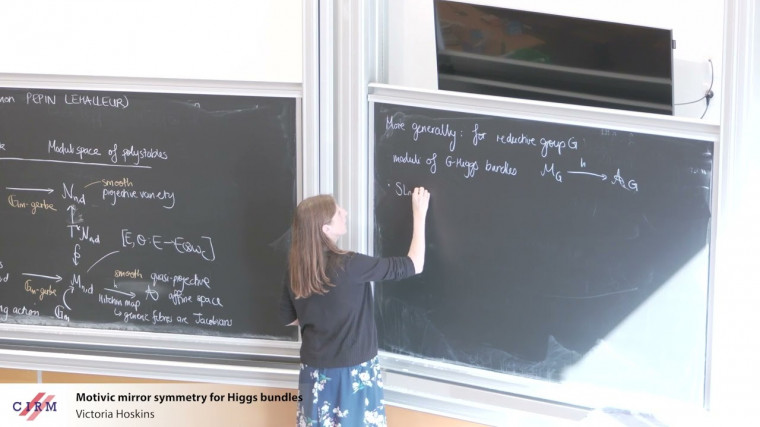 PEPIN LEHALLEUR)
Moduli space of polystables
smooth
N_{n,d} projective variety
G_m-gerbe
T*N_{n,d}
[E, θ: E → E⊗ω_C]
smooth quasi-projective
M_{n,d} → A affine space
G_m-gerbe
Hitchin map
↳ generic fibres are Jacobians
action G_m
More generally: for reductive group G
moduli of G-Higgs bundles M_G →^h A_G
· SL
CIRM
Motivic mirror symmetry for Higgs bundles
Victoria Hoskins